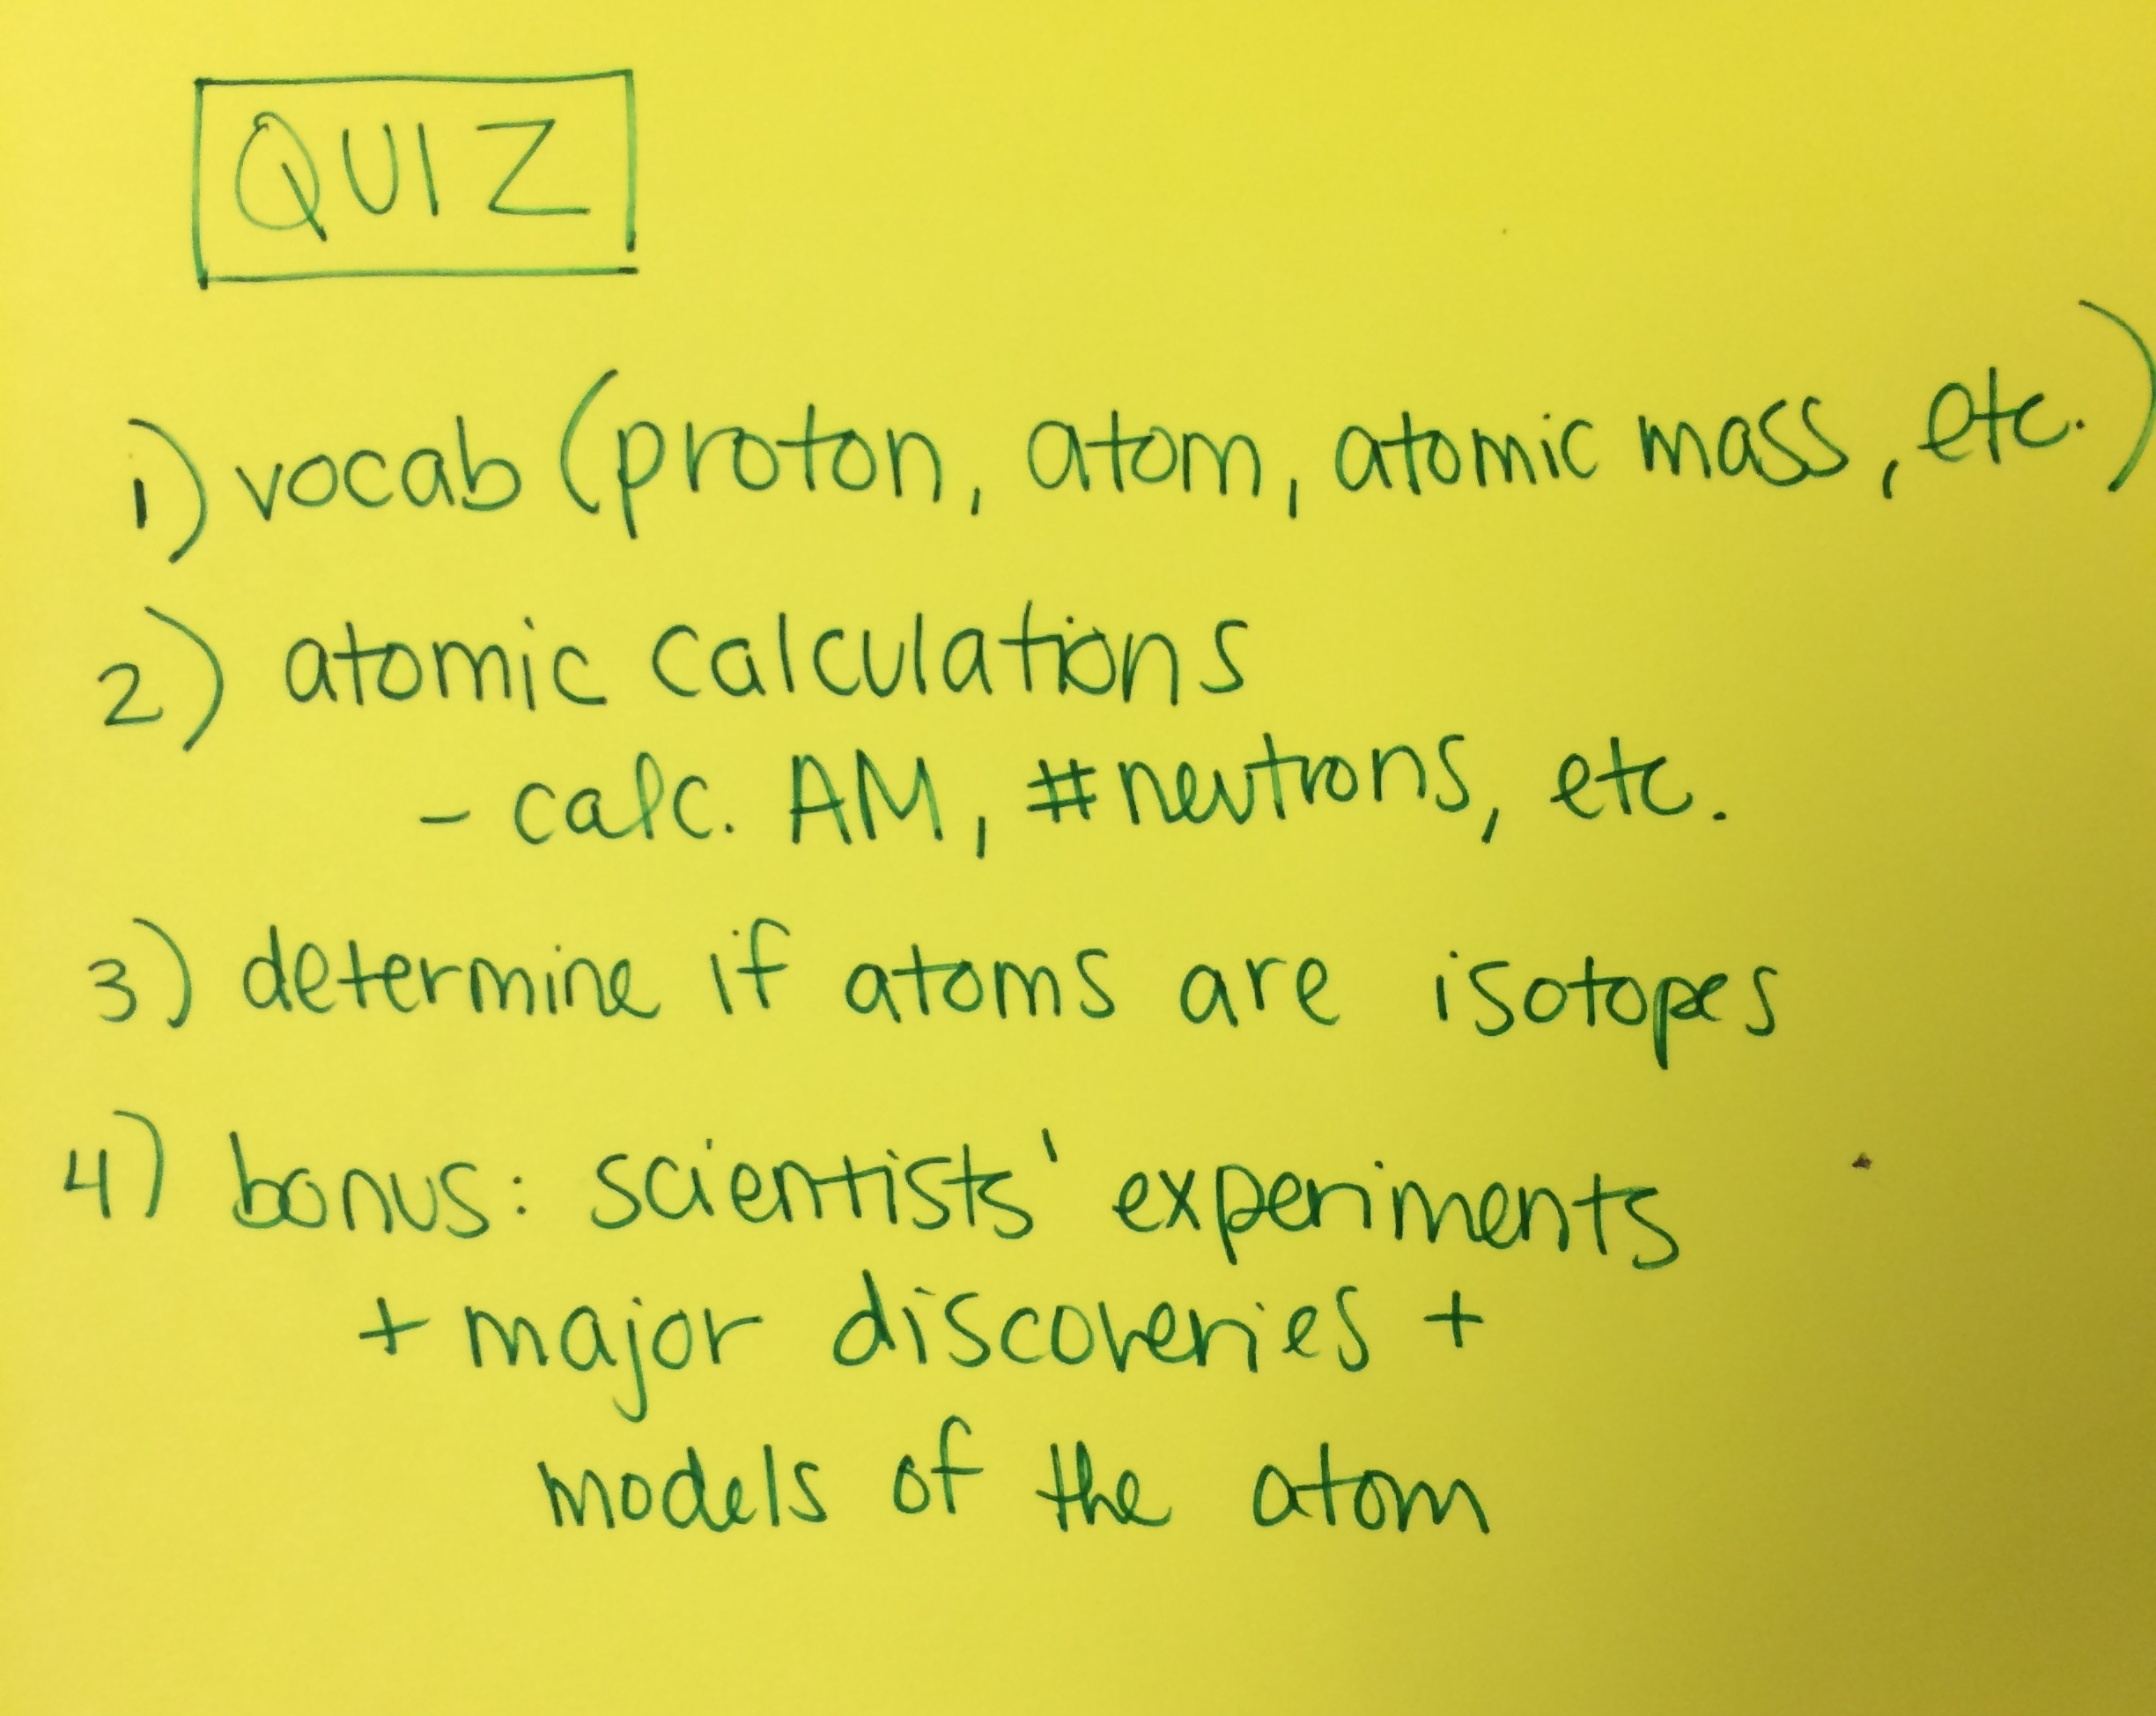 QUIZ
1) vocab (proton, atom, atomic mass, etc.)
2) atomic calculations
- calc. AM, #neutrons, etc.
3) determine if atoms are isotopes
4) bonus: scientists' experiments
+ major discoveries +
models of the atom